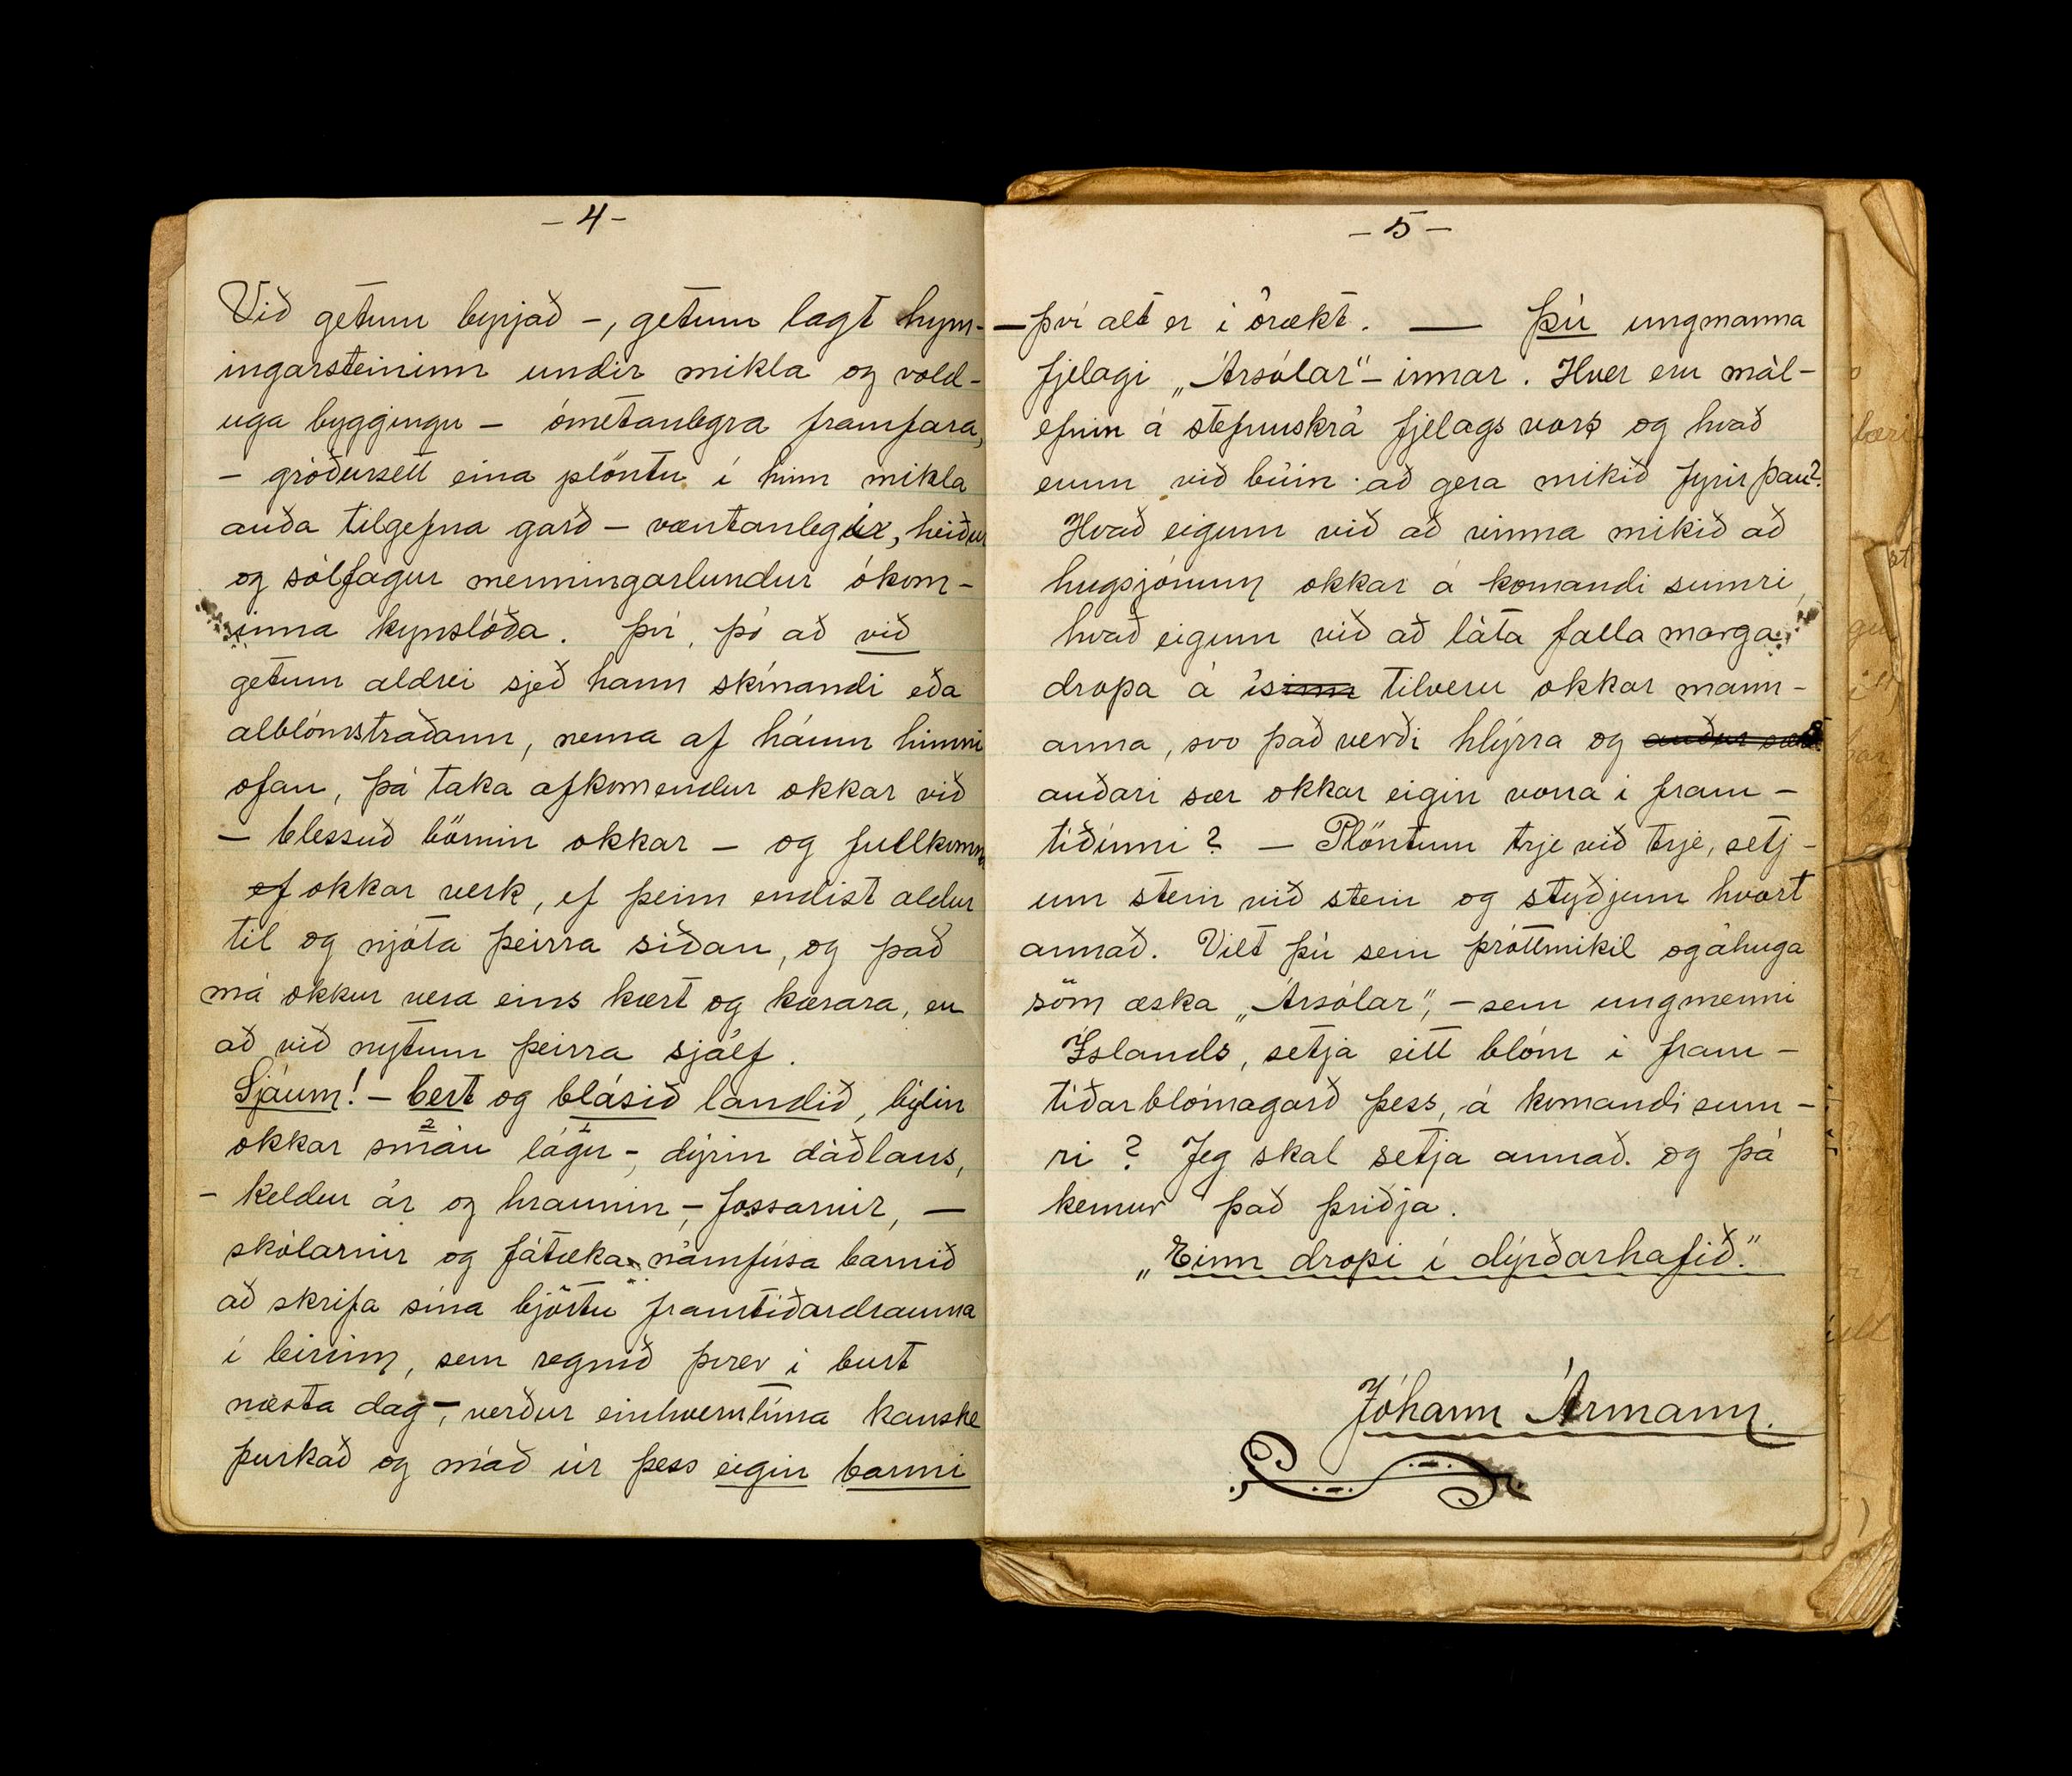 - 4 -
Við getum byrjað -, getum lagt hyrn-
ingarsteininn undir mikla og vold-
uga byggingu - ómetanlegra framfara,
- gróðursett eina plöntu í hinn mikla
auða tilgefna garð - væntanlegur, heiður
og sólfagur menningarlundur ókom-
inna kynslóða. Því, þó að við
getum aldrei sjeð hann skínandi eða
alblómstraðann, nema af háum himni
ofan, þá taka afkomendur okkar við
- blessuð börnin okkar - og fullkomna
ef okkar verk, ef þeim endist aldur
til og njóta þeirra síðan, og það
má okkur vera eins kært og kærara, en
að við nytum þeirra sjálf.
Sjáum! - bert og blásið landið, býlin
okkar smáu lágu -, dýrin dáðlaus,
- keldur ár og hraunin, - fossarnir, -
skólarnir og fátæka námfúsa barnið
að skrifa sína björtu framtíðardrauma
í leirinn, sem regnið þvær í burt
næsta dag -, verður einhverntíma kanske
þurkað og máð úr þess eigin barmi
- 5 -
- því alt er í órækt. — Þú ungmanna
fjelagi „Ársólar"- innar. Hver eru mál-
efnin á stefnuskrá fjelags vors og hvað
erum við búin að gera mikið fyrir þau?
Hvað eigum við að vinna mikið að
hugsjónum okkar á komandi sumri,
hvað eigum við að láta falla marga
dropa á ísinn tilveru okkar mann-
anna, svo það verði hlýrra og auður sær
auðari sær okkar eigin vona í fram-
tíðinni? - Plöntum trje við trje, setj-
um stein við stein og styðjum hvort
annað. Vilt þú sem þróttmikil og áhuga
söm æska „Ársólar", - sem ungmenni
Íslands, setja eitt blóm í fram-
tíðarblómagarð þess, á komandi sum-
ri? Jeg skal setja annað. og þá
kemur það þriðja.
„Einn dropi í dýrðarhafið."
Jóhann Ármann.